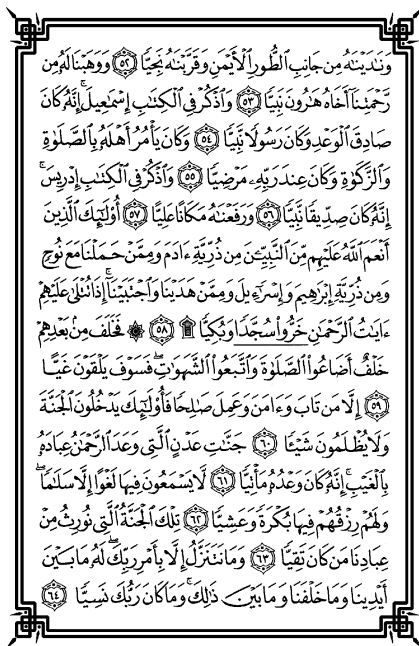 وَنَٰدَيْنَٰهُ مِن جَانِبِ ٱلطُّورِ ٱلْأَيْمَنِ وَقَرَّبْنَٰهُ نَجِيًّا ۝٥٢ وَوَهَبْنَا لَهُۥ مِن
رَّحْمَتِنَآ أَخَاهُ هَٰرُونَ نَبِيًّا ۝٥٣ وَٱذْكُرْ فِى ٱلْكِتَٰبِ إِسْمَٰعِيلَ ۚ إِنَّهُۥ كَانَ
صَادِقَ ٱلْوَعْدِ وَكَانَ رَسُولًا نَّبِيًّا ۝٥٤ وَكَانَ يَأْمُرُ أَهْلَهُۥ بِٱلصَّلَوٰةِ
وَٱلزَّكَوٰةِ وَكَانَ عِندَ رَبِّهِۦ مَرْضِيًّا ۝٥٥ وَٱذْكُرْ فِى ٱلْكِتَٰبِ إِدْرِيسَ ۚ
إِنَّهُۥ كَانَ صِدِّيقًا نَّبِيًّا ۝٥٦ وَرَفَعْنَٰهُ مَكَانًا عَلِيًّا ۝٥٧ أُو۟لَٰٓئِكَ ٱلَّذِينَ
أَنْعَمَ ٱللَّهُ عَلَيْهِم مِّنَ ٱلنَّبِيِّۦنَ مِن ذُرِّيَّةِ ءَادَمَ وَمِمَّنْ حَمَلْنَا مَعَ نُوحٍ
وَمِن ذُرِّيَّةِ إِبْرَٰهِيمَ وَإِسْرَٰٓءِيلَ وَمِمَّنْ هَدَيْنَا وَٱجْتَبَيْنَآ ۚ إِذَا تُتْلَىٰ عَلَيْهِمْ
ءَايَٰتُ ٱلرَّحْمَٰنِ خَرُّوا۟ سُجَّدًا وَبُكِيًّا ۩ ۝٥٨ ۞ فَخَلَفَ مِنۢ بَعْدِهِمْ
خَلْفٌ أَضَاعُوا۟ ٱلصَّلَوٰةَ وَٱتَّبَعُوا۟ ٱلشَّهَوَٰتِ ۖ فَسَوْفَ يَلْقَوْنَ غَيًّا
۝٥٩ إِلَّا مَن تَابَ وَءَامَنَ وَعَمِلَ صَٰلِحًا فَأُو۟لَٰٓئِكَ يَدْخُلُونَ ٱلْجَنَّةَ
وَلَا يُظْلَمُونَ شَيْـًٔا ۝٦٠ جَنَّٰتِ عَدْنٍ ٱلَّتِى وَعَدَ ٱلرَّحْمَٰنُ عِبَادَهُۥ
بِٱلْغَيْبِ ۚ إِنَّهُۥ كَانَ وَعْدُهُۥ مَأْتِيًّا ۝٦١ لَّا يَسْمَعُونَ فِيهَا لَغْوًا إِلَّا سَلَٰمًا ۖ
وَلَهُمْ رِزْقُهُمْ فِيهَا بُكْرَةً وَعَشِيًّا ۝٦٢ تِلْكَ ٱلْجَنَّةُ ٱلَّتِى نُورِثُ مِنْ
عِبَادِنَا مَن كَانَ تَقِيًّا ۝٦٣ وَمَا نَتَنَزَّلُ إِلَّا بِأَمْرِ رَبِّكَ ۖ لَهُۥ مَا بَيْنَ
أَيْدِينَا وَمَا خَلْفَنَا وَمَا بَيْنَ ذَٰلِكَ ۚ وَمَا كَانَ رَبُّكَ نَسِيًّا ۝٦٤